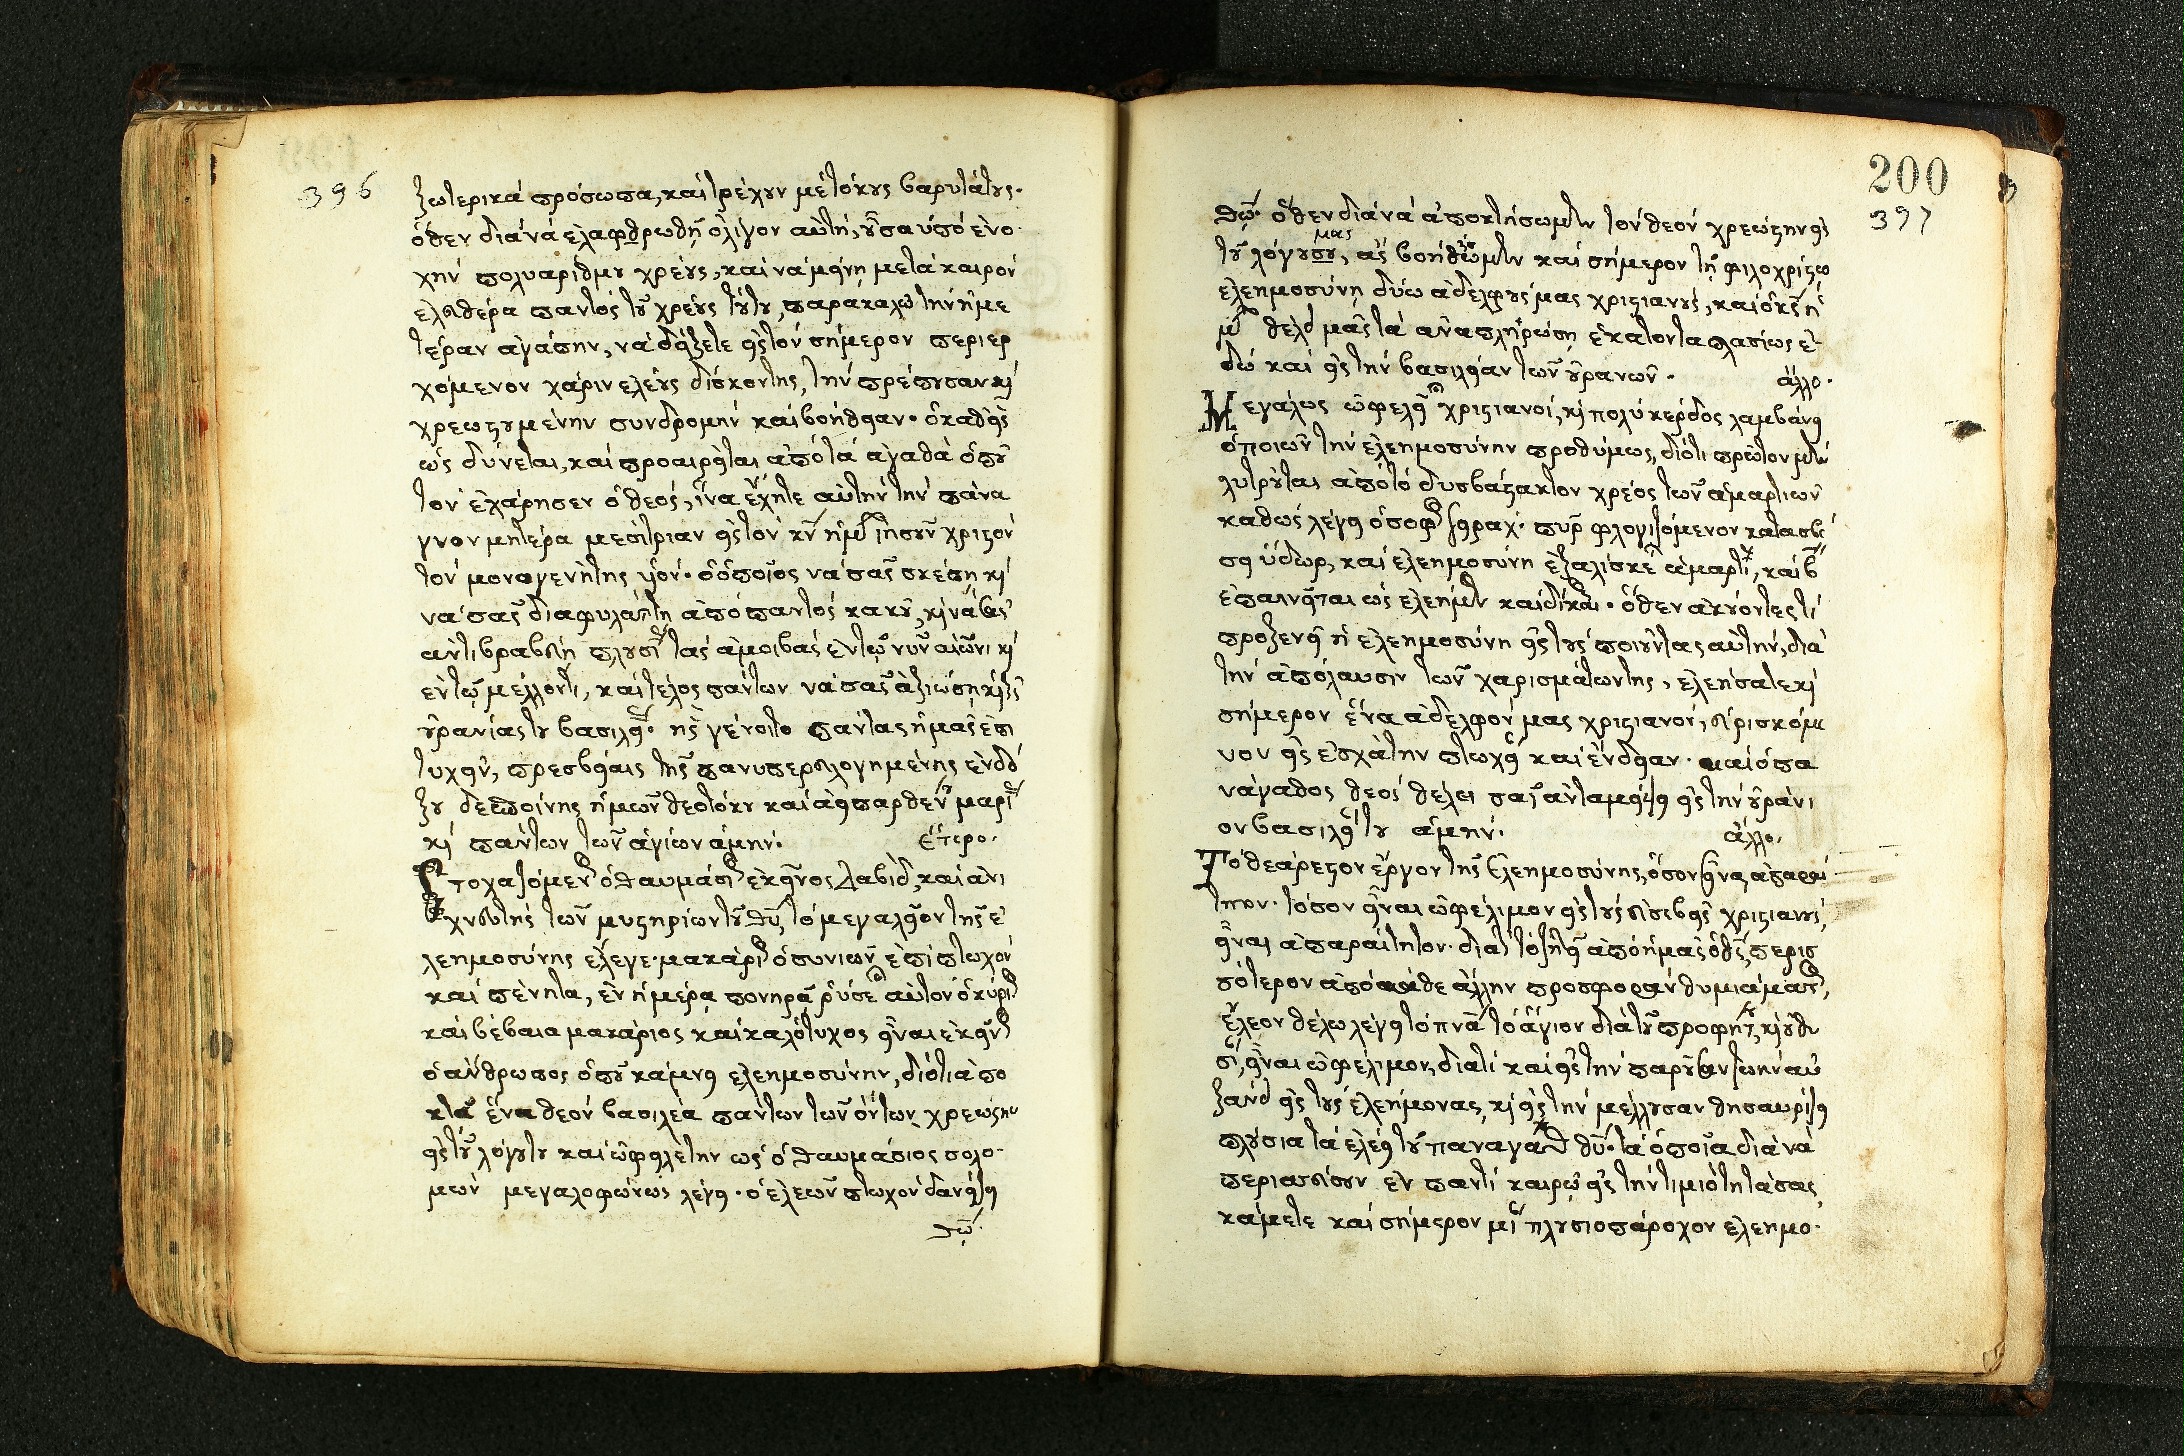 396
ξωτερικά πρόσωπα, καί τρέχουν μέ τόκους βαρυτάτους.
ὅθεν διά νά ἐλαφρωθῇ ὀλίγον αὐτή, οὖσα ὑπό ἐνο
χήν πολυαρίθμου χρέους, καί νά μείνῃ μετά καιρόν
ἐλευθέρα παντός τοῦ χρέους τούτου, παρακαλῶ τήν ἡμε
τέραν ἀγάπην, νά δείξετε εἰς τόν σήμερον περιερ
χόμενον χάριν ἐλέους δίσκον της, τήν πρέπουσαν κ(αί)
χρεωστουμένην συνδρομήν καί βοήθειαν. ὁ καθείς
ὡς δύνεται, καί προαιρεῖται ἀπό τά ἀγαθά ὁποῦ
τόν ἐχάρησεν ὁ θεός, ἵνα ἔχητε αὐτήν τήν πάνα
γνον μητέρα μεσίτριαν εἰς τόν κν ἡμῶν ἰησοῦν χριστόν
τόν μονογενῆ της υἱόν. ὁ ὁποῖος νά σᾶς σκέπῃ κ(αί)
νά σᾶς διαφυλάττῃ ἀπό παντός κακοῦ, κ(αί) νά σας
ἀντιβραβεύῃ πλουσί τάς ἀμοιβάς ἐν τῷ νῦν αἰῶνι κ(αί)
ἐν τῷ μέλλοντι, καί τέλος πάντων νά σᾶς ἀξιώσῃ κ(αί) τῆς
οὐρανίας του βασιλεί. ἧς γένοιτο πάντας ἡμᾶς ἐπι
τυχεῖν, πρεσβείαις τῆς πανυπερευλογημένης ἐνδό
ξου δεσποίνης ἡμῶν θεοτόκου καί ἀειπαρθέν μαρί
κ(αί) πάντων τῶν ἁγίων ἀμήν. ἕτερο.
Στοχαζόμεν ὁ θαυμάσι ἐκεῖνος Δαβίδ, καί ἀνι
χνευτής τῶν μυστηρίων τοῦ θῦ, τό μεγαλεῖον τῆς ἐ
λεημοσύνης ἔλεγε. μακάρι ὁ συνιῶν ἐπί πτωχόν
καί πένητα, ἐν ἡμέρᾳ πονηρᾷ ῥύσε αὐτόν ὁ κύρι
καί βέβαια μακάριος καί καλότυχος εἶναι ἐκεῖν
ὁ ἄνθρωπος ὁποῦ κάμνει ἐλεημοσύνην, διότι ἀπο
κτᾷ ἕνα θεόν βασιλέα πάντων τῶν ὄντων χρεώστην
εἰς τοῦ λόγου του καί ὠφειλέτην ὡς ὁ θαυμάσιος σολο
μών μεγαλοφώνως λέγει. ὁ ἐλεῶν πτωχόν δανείζει
θῶ.
200
397
θῶ. ὅθεν διά νά ἀποκτήσωμεν τόν θεόν χρεώστην εἰς
τοῦ λόγου σου, μας ἄς βοηθήσωμεν καί σήμερον τῇ φιλοχρίστῳ
ἐλεημοσύνῃ δύω ἀδελφούς μας χριστιανούς, καί ὁ κς ἡ
μῶν θέλει μᾶς τά ἀναπληρώσῃ ἑκατονταπλασίως ἐ
δώ καί εἰς τήν βασιλείαν τῶν οὐρανῶν. ἄλλο.
Μεγάλως ὠφελεῖτ χριστιανοί, κ(αί) πολύ κέρδος λαμβάνει
ὁ ποιῶν τήν ἐλεημοσύνην προθύμως, διότι πρῶτον μέν
λυτροῦται ἀπό τό δυσβάστακτον χρέος τῶν ἁμαρτιῶν
καθώς λέγει ὁ σοφ σειράχ. πῦρ φλογιζόμενον κατασβέ
σει ὕδωρ, καί ἐλεημοσύνη ἐξαλίσκε ἁμαρτί, καί β
ἐπαινεῖται ὡς ἐλεήμων καί δίκαι. ὅθεν ἀκούοντες τί
προξενεῖ ἡ ἐλεημοσύνη εἰς τούς ποιοῦντας αὐτήν, διά
τήν ἀπόλαυσιν τῶν χαρισμάτων της, ἐλεήσατε κ(αί)
σήμερον ἕνα ἀδελφόν μας χριστιανόν, εὑρισκόμε
νον εἰς ἐσχάτην πτωχεί καί ἔνδειαν. καί ὁ πα
νάγαθος θεός θέλει σᾶς ἀνταμείψει εἰς τήν οὐράνι
ον βασιλεί του ἀμήν. ἄλλο.
Τό θεάρεστον ἔργον τῆς ἐλεημοσύνης, ὅσον εἶναι ἀπαραί
τητον. τόσον εἶναι ὠφέλιμον εἰς τούς εὐσεβεῖς χριστιανούς,
εἶναι ἀπαραίτητον. διατί τό ζητεῖ ἀπό ἡμᾶς ὁ θς, περισ
σότερον ἀπό κάθε ἄλλην προσφοράν θυμιάματ,
ἔλεον θέλω λέγει τό πνᾶ τό ἅγιον διά τοῦ προφήτ, κ(αί) οὐ θυ
σί, εἶναι ὠφέλιμον, διατί καί εἰς τήν παροῦσαν ζωήν αὐ
ξάνει εἰς τούς ἐλεήμονας, κ(αί) εἰς τήν μέλλουσαν θησαυρίζει
πλούσια τά ἐλέη τοῦ παναγάθ θῦ. τά ὁποῖα διά νά
περισσεύσουν ἐν παντί καιρῷ εἰς τήν τιμιότητά σας
κάμετε καί σήμερον μί πλουσιοπάροχον ἐλεημο